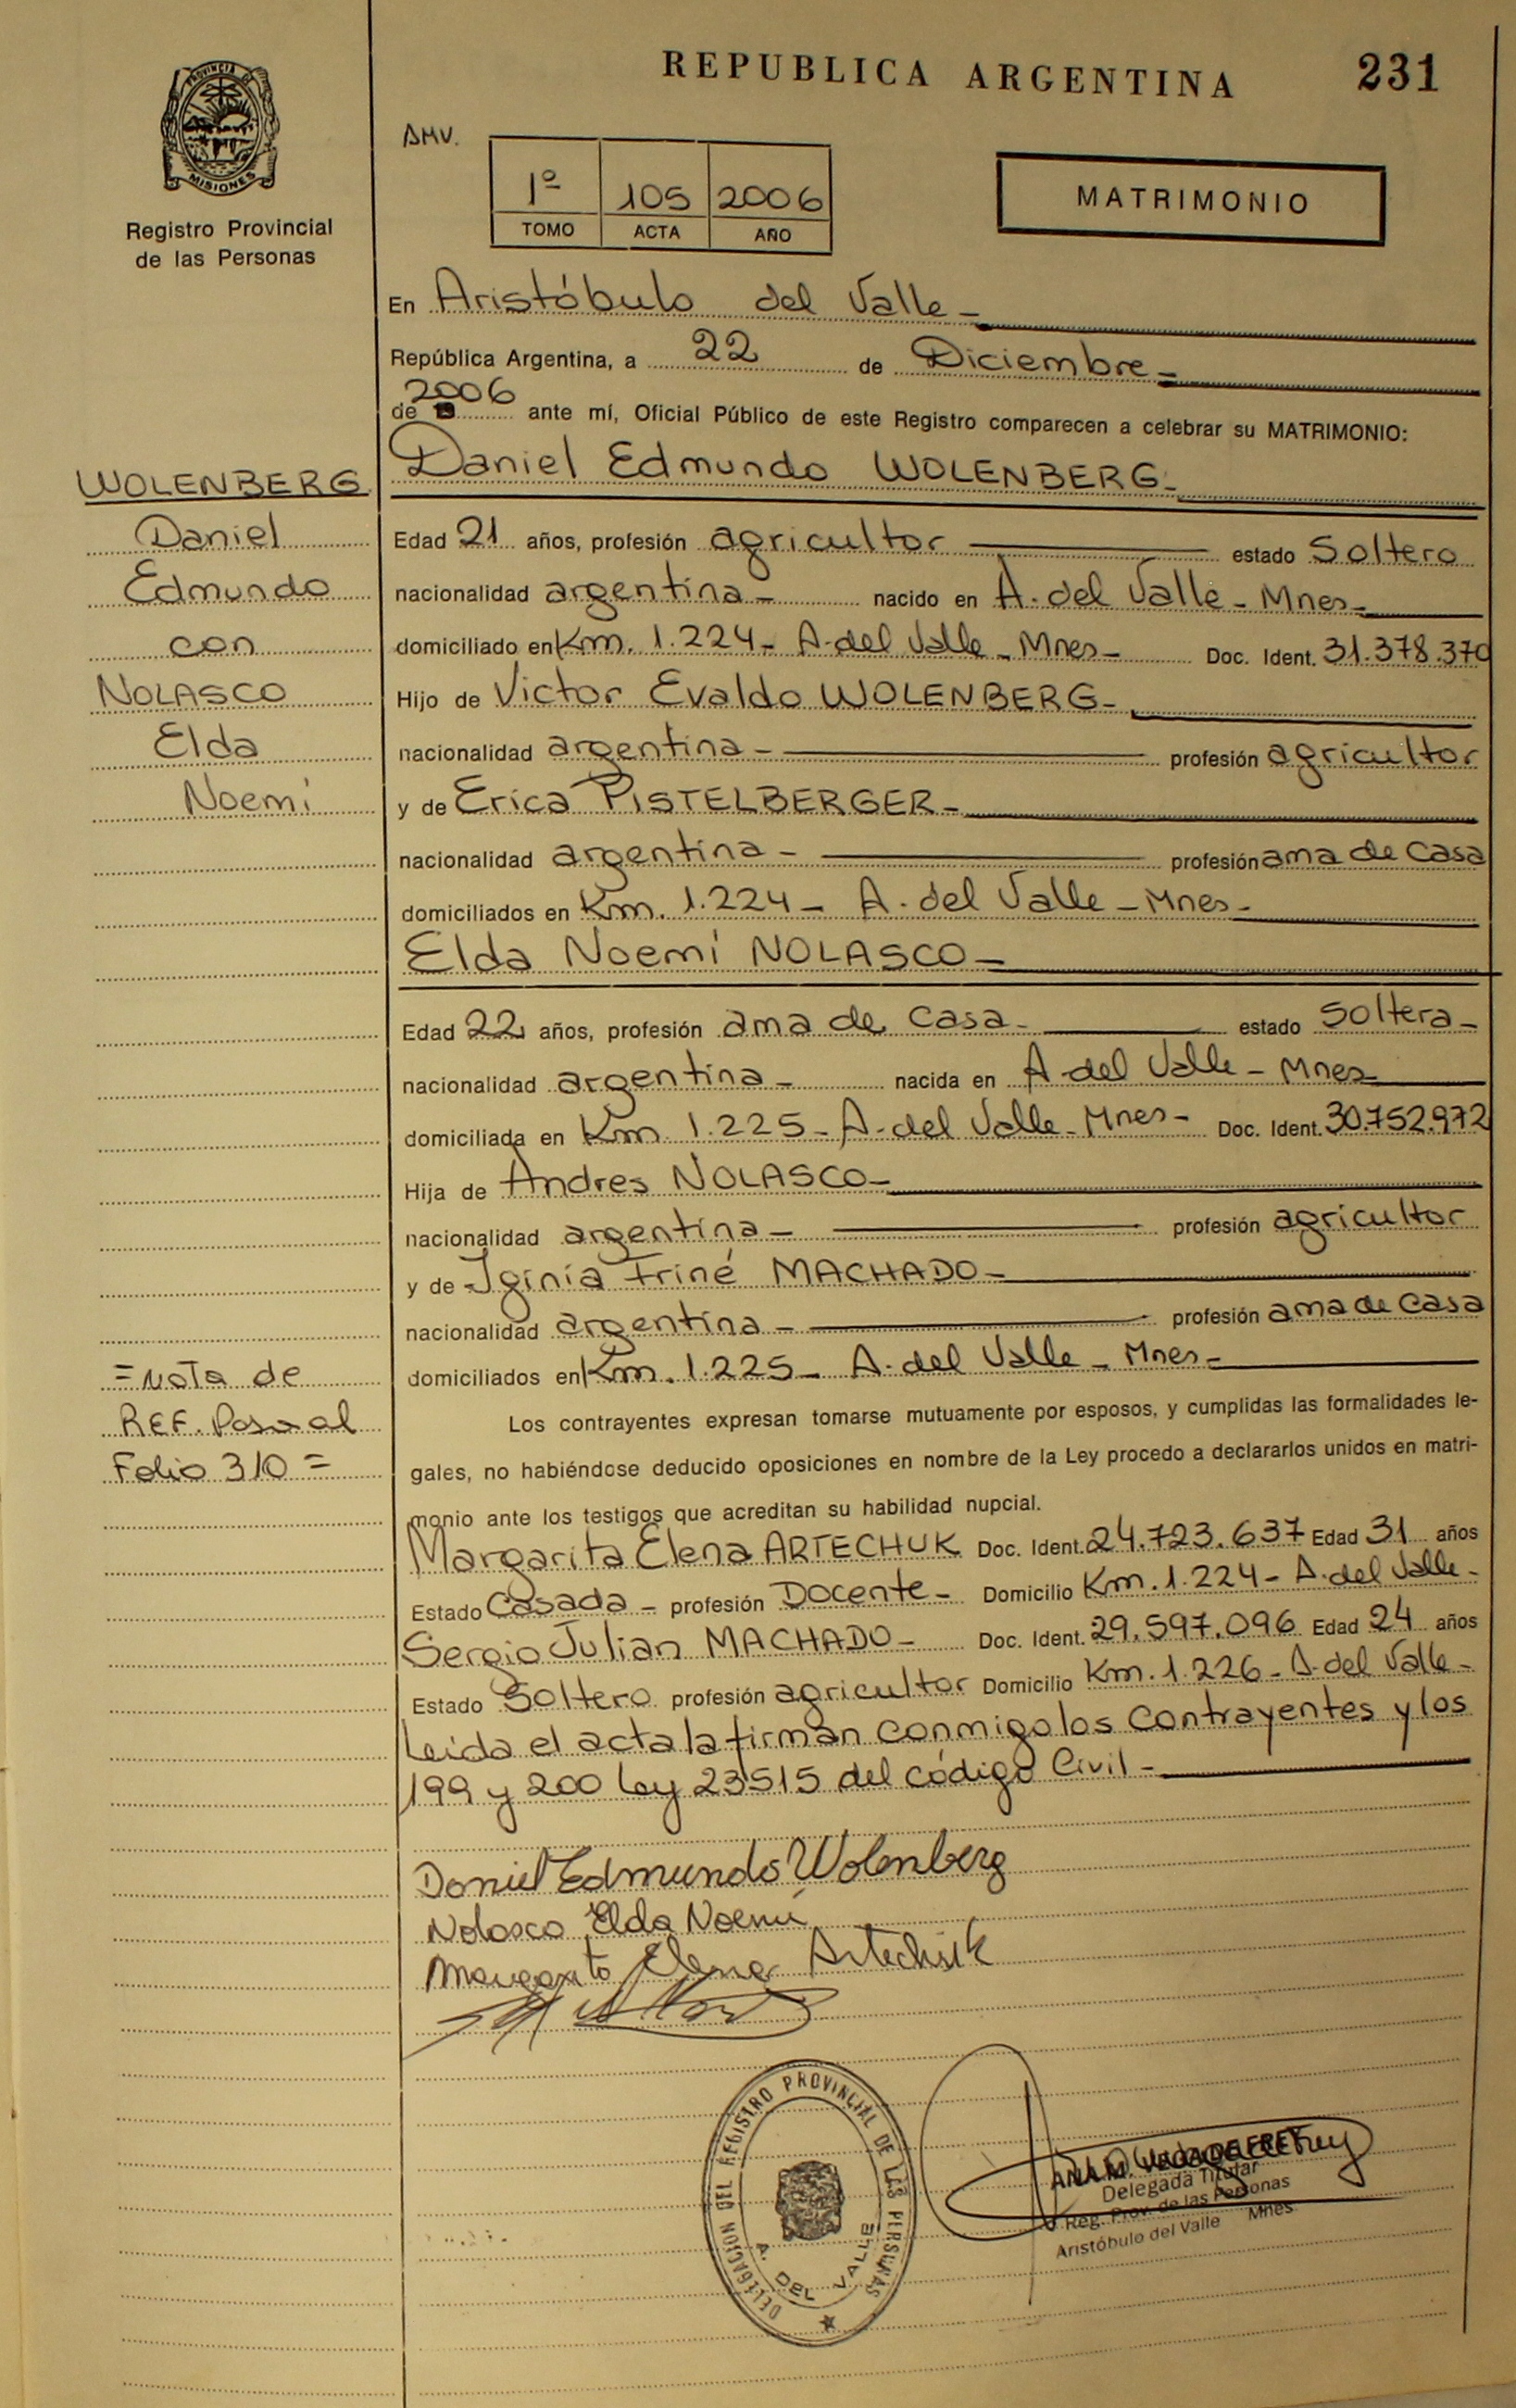 REPUBLICA ARGENTINA
231
PROVINCIA DE
MISIONES
Registro Provincial
de las Personas
AMV.
1º 105 2006
TOMO ACTA AÑO
MATRIMONIO
En Aristóbulo del Valle -
República Argentina, a 22 de Diciembre -
de 2006 ante mí, Oficial Público de este Registro comparecen a celebrar su MATRIMONIO:
Daniel Edmundo WOLENBERG -
WOLENBERG
Daniel
Edmundo
con
NOLASCO
Elda
Noemí
Edad 21 años, profesión agricultor estado Soltero
nacionalidad argentina - nacido en A. del Valle - Mnes -
domiciliado en Km. 1.224 - A. del Valle - Mnes - Doc. Ident. 31.378.370
Hijo de Victor Evaldo WOLENBERG -
nacionalidad argentina - profesión agricultor
y de Erica PISTELBERGER -
nacionalidad argentina - profesión ama de casa
domiciliados en Km. 1.224 - A. del Valle - Mnes -
Elda Noemí NOLASCO -
Edad 22 años, profesión ama de casa - estado Soltera -
nacionalidad argentina - nacida en A del Valle - Mnes
domiciliada en Km 1.225 - A. del Valle - Mnes - Doc. Ident. 30.752.972
Hija de Andres NOLASCO -
nacionalidad argentina - profesión agricultor
y de Iginia Friné MACHADO -
nacionalidad argentina - profesión ama de casa
domiciliados en Km. 1.225 - A. del Valle - Mnes -
= Nota de
REF.
Folio 310 =
Los contrayentes expresan tomarse mutuamente por esposos, y cumplidas las formalidades le-
gales, no habiéndose deducido oposiciones en nombre de la Ley procedo a declararlos unidos en matri-
monio ante los testigos que acreditan su habilidad nupcial.
Margarita Elena ARTECHUK Doc. Ident. 24.723.637 Edad 31 años
Estado Casada - profesión Docente - Domicilio Km. 1.224 - A. del Valle -
Sergio Julian MACHADO - Doc. Ident. 29.597.096 Edad 24 años
Estado Soltero profesión agricultor Domicilio Km. 1.226 - A. del Valle -
Leida el acta la firman conmigo los contrayentes y los
199 y 200 Ley 23515 del código Civil -
Daniel Edmundo Wolenberg
Nolasco Elda Noemí
Margarita Elena Artechuk
DELEGACION DEL REGISTRO PROVINCIAL DE LAS PERSONAS
A. DEL VALLE
ANA M. VEGA DE FREY
Delegada Titular
Reg. Prov. de las Personas
Aristóbulo del Valle Mnes